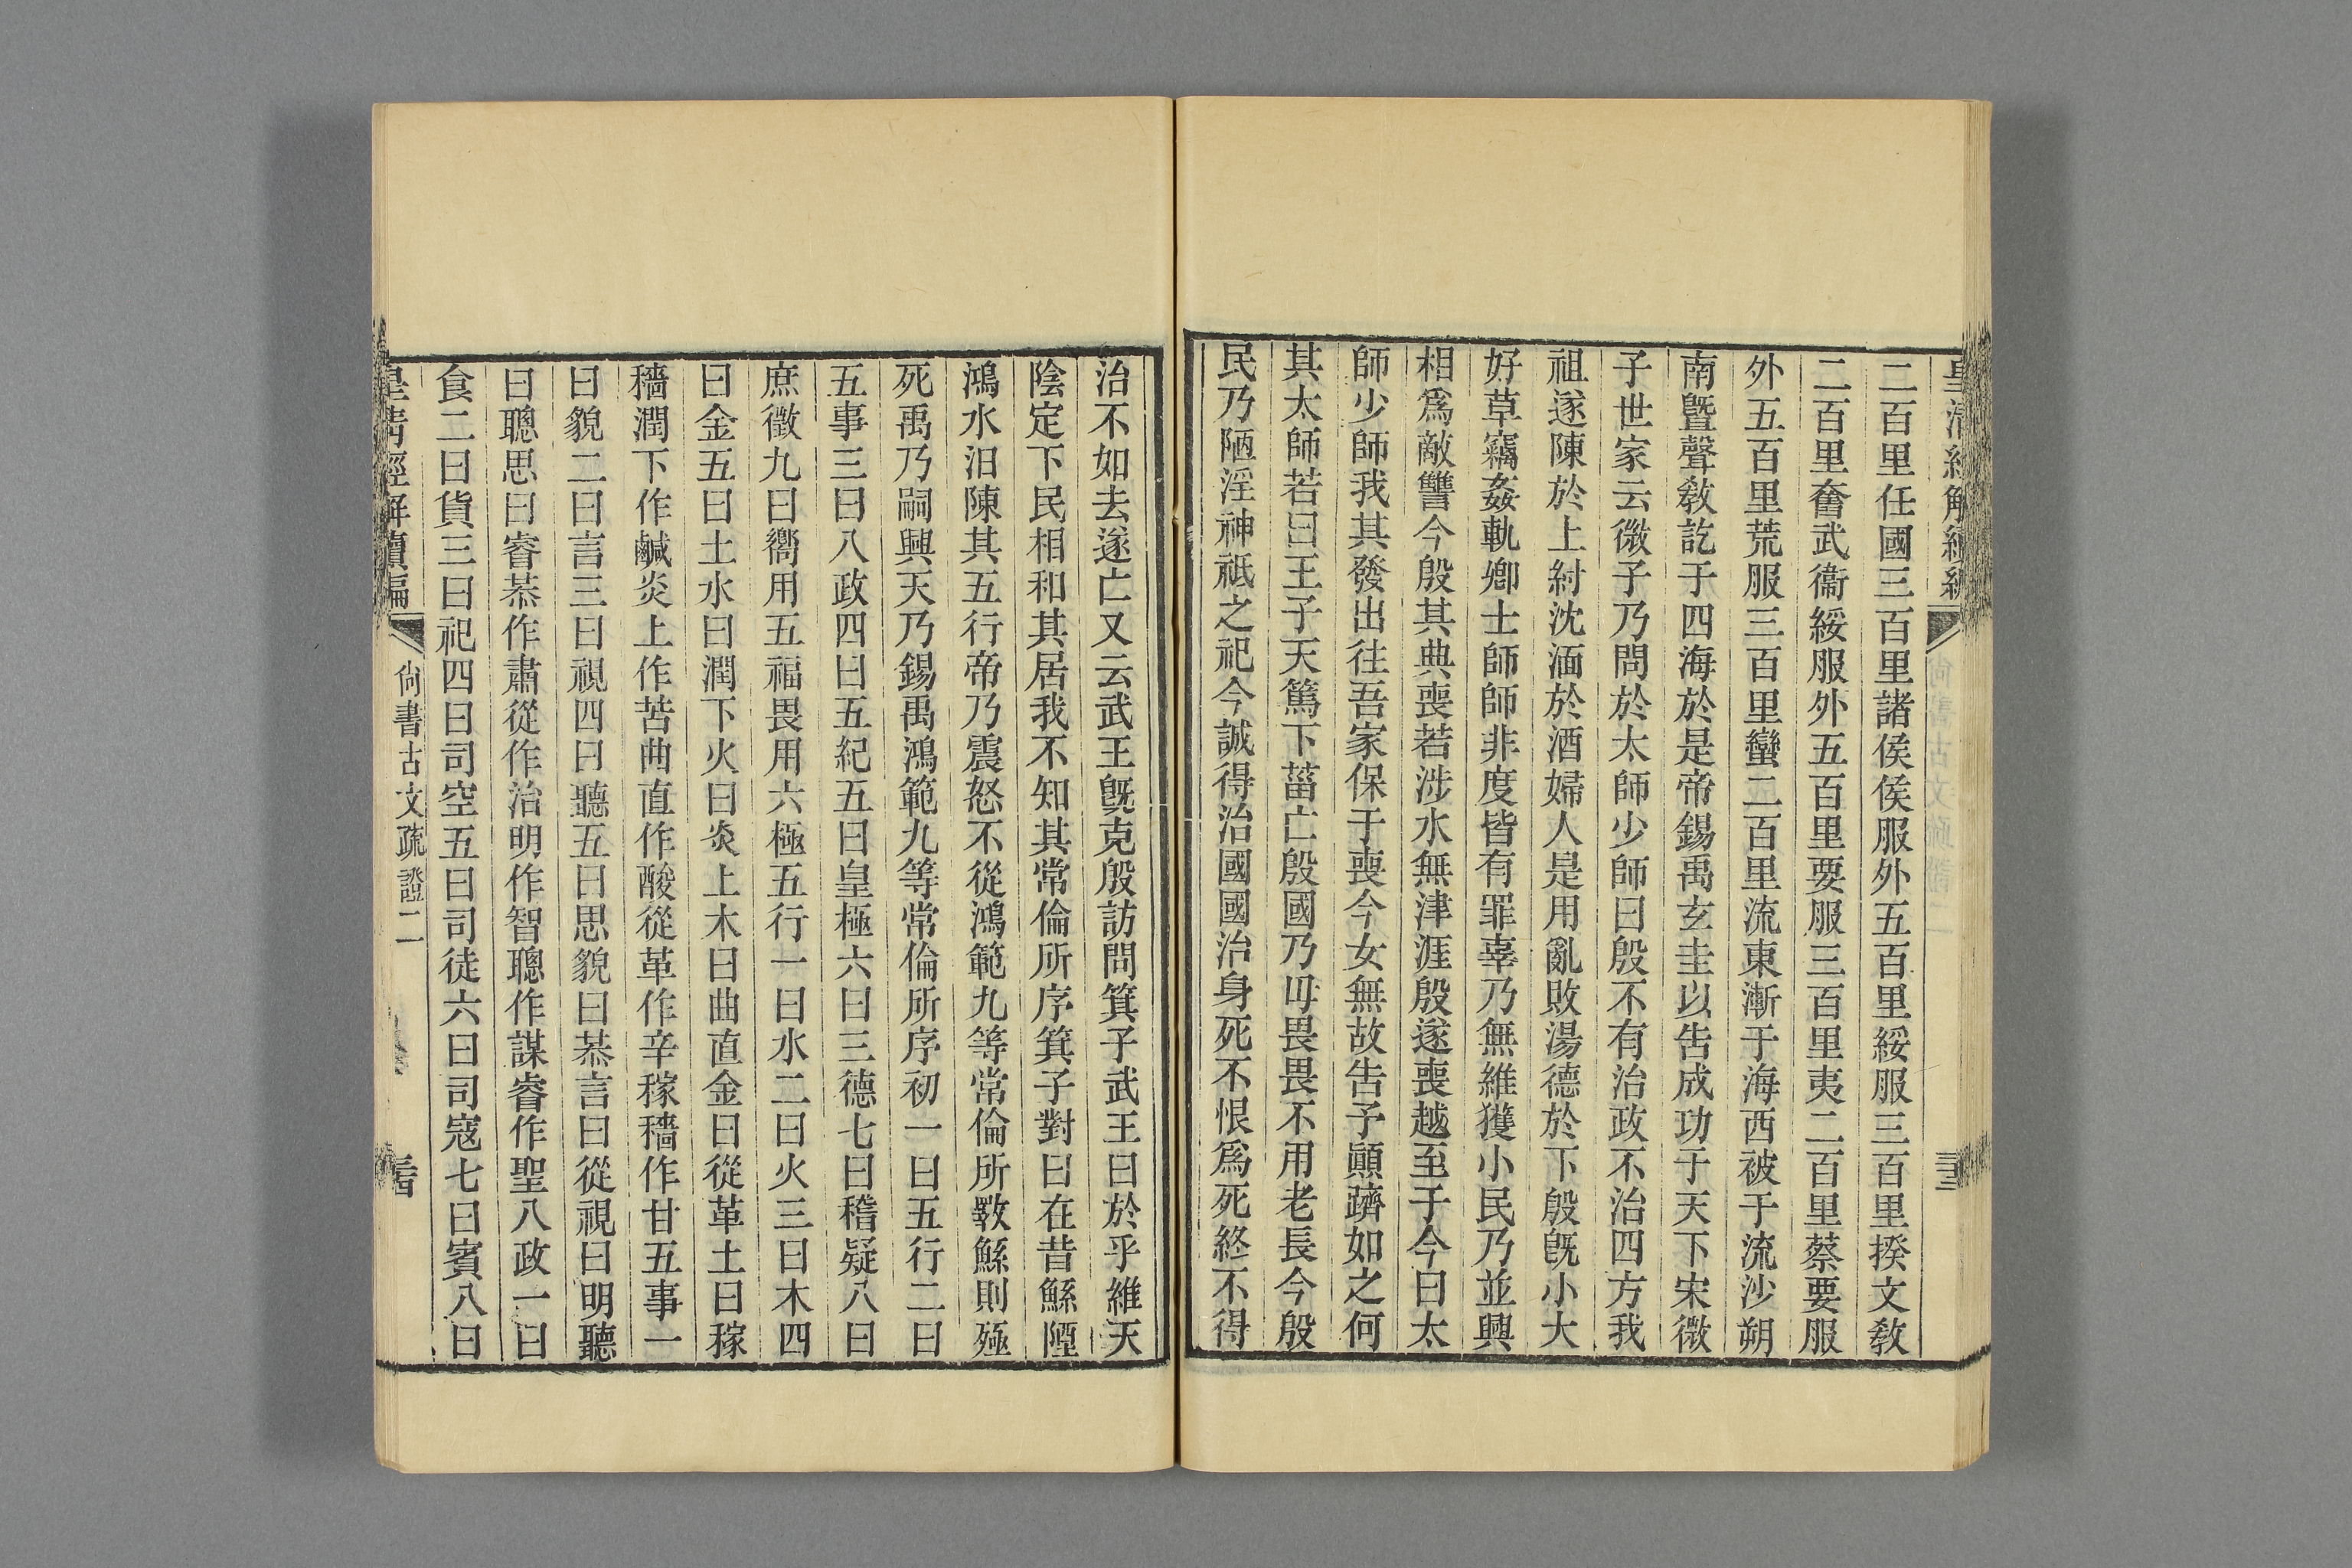 二百里任國三百里諸侯侯服外五百里綏服三百里揆文敎
二百里奮武衞綏服外五百里要服三百里夷二百里蔡要服
外五百里荒服三百里蠻二百里流東漸于海西被于流沙朔
南曁聲敎訖于四海於是帝錫禹玄圭以告成功于天下宋微
子世家云微子乃問於太師少師曰殷不有治政不治四方我
祖遂陳於上紂沈湎於酒婦人是用亂敗湯德於下殷旣小大
好草竊姦軌卿士師師非度皆有罪辜乃無維獲小民乃並興
相爲敵讐今殷其典喪若涉水無津涯殷遂喪越至于今曰太
師少師我其發出往吾家保于喪今女無故告予顚躋如之何
其太師若曰王子天篤下菑亡殷國乃毋畏畏不用老長今殷
民乃陋淫神祇之祀今誠得治國國治身死不恨爲死終不得
治不如去遂亡又云武王旣克殷訪問箕子武王曰於乎維天
陰定下民相和其居我不知其常倫所序箕子對曰在昔鯀陻
鴻水汨陳其五行帝乃震怒不從鴻範九等常倫所斁鯀則殛
死禹乃嗣興天乃錫禹鴻範九等常倫所序初一曰五行二曰
五事三曰八政四曰五紀五曰皇極六曰三德七曰稽疑八曰
庶徵九曰嚮用五福畏用六極五行一曰水二曰火三曰木四
曰金五曰土水曰潤下火曰炎上木曰曲直金曰從革土曰稼
穡潤下作鹹炎上作苦曲直作酸從革作辛稼穡作甘五事一
曰貌二曰言三曰視四曰聽五曰思貌曰恭言曰從視曰明聽
曰聰思曰睿恭作肅從作治明作智聰作謀睿作聖八政一曰
食二曰貨三曰祀四曰司空五曰司徒六曰司寇七曰賓八曰
皇淸經解續編 尙書古文疏證二